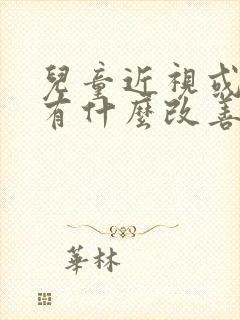 兒童近視或
有什麼改善
華林